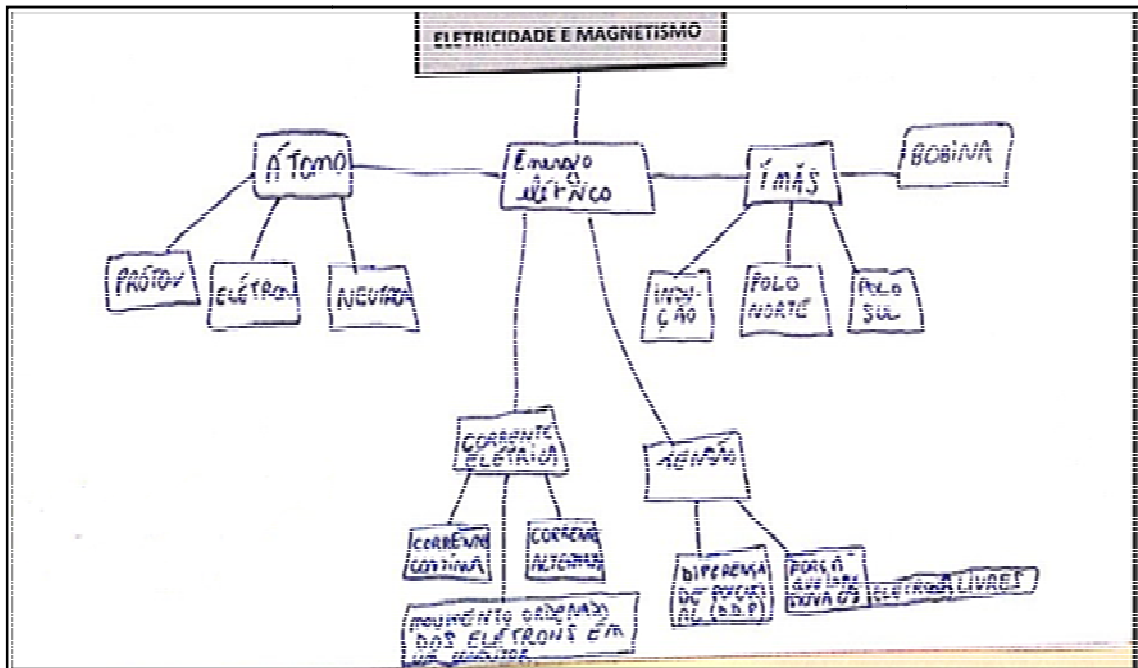 ELETRICIDADE E MAGNETISMO
ÁTOMO
Energia
elétrica
ÍMÃS
BOBINA
PRÓTON
ELÉTRON
NEUTRON
INDU-
ÇÃO
POLO
NORTE
POLO
SUL
CORRENTE
ELÉTRICA
TENSÃO
CORRENTE
CONTÍNUA
CORRENTE
ALTERNADA
MOVIMENTO ORDENADO
DOS ELÉTRONS EM
UM CONDUTOR
DIFERENÇA
DE POTENCI
AL (D.D.P)
FORÇA
QUE
MOVA OS ELETRONS LIVRES